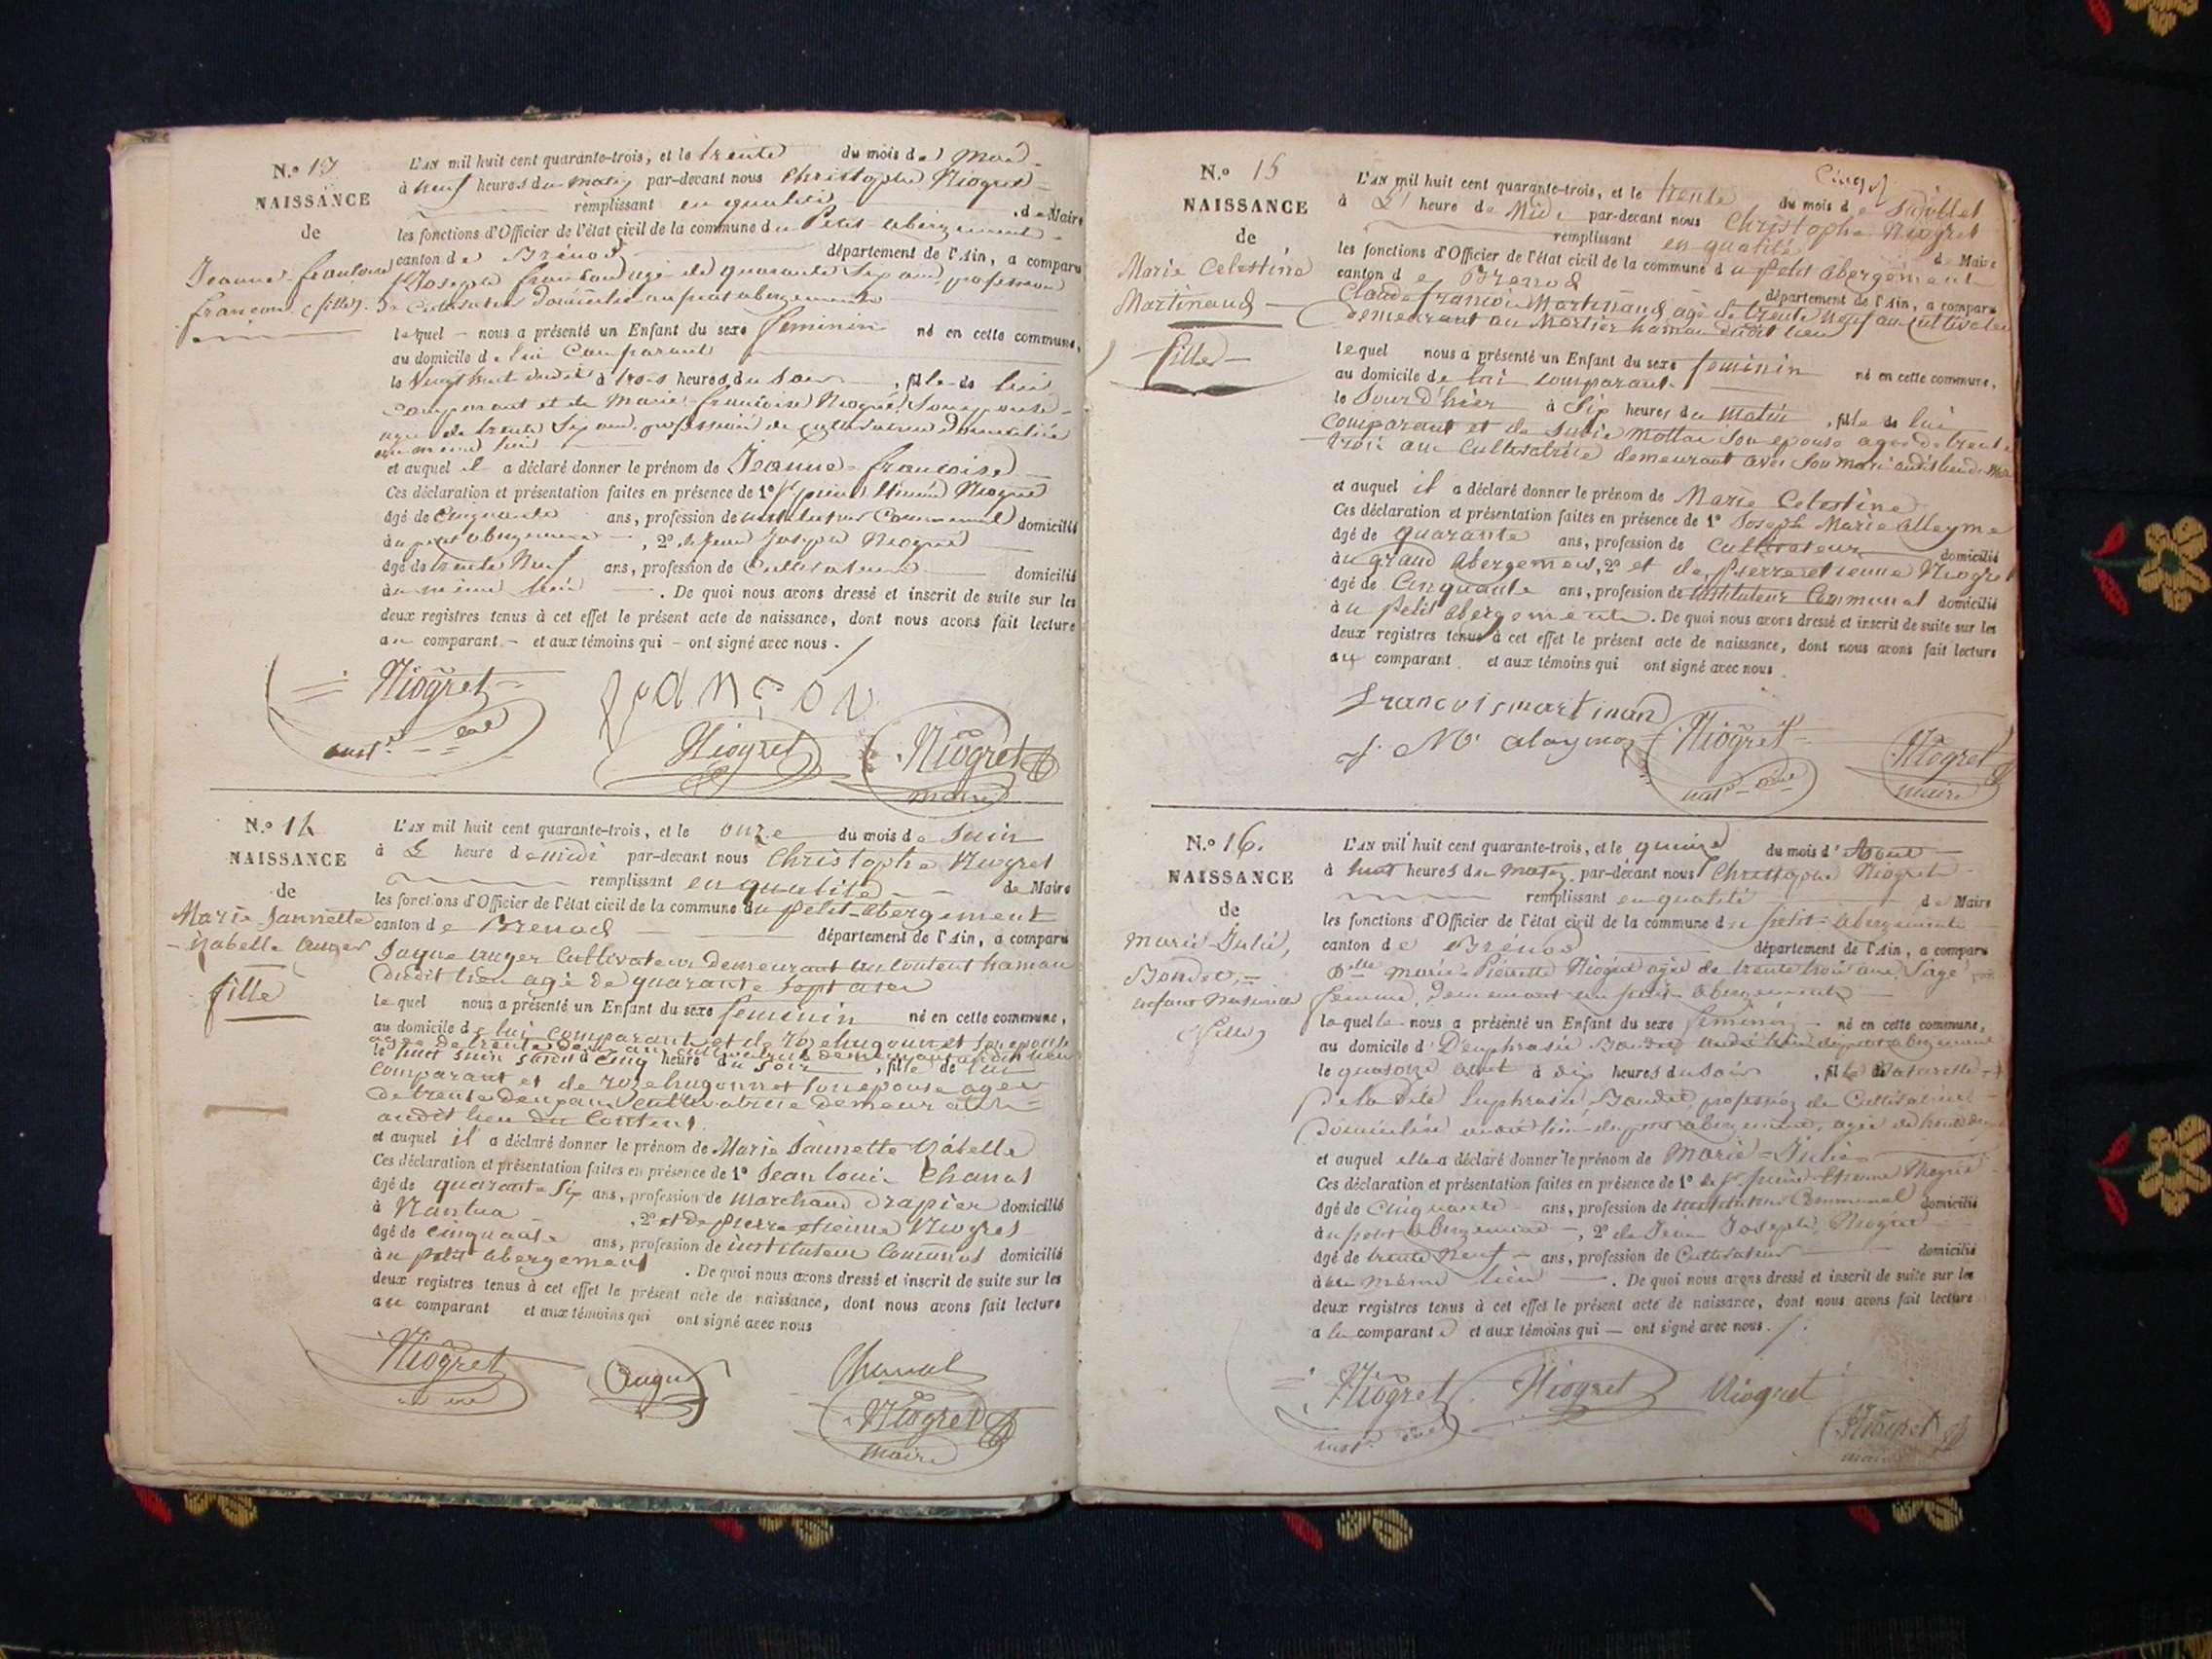 N.º 13
NAISSANCE
de
Jeanne françoise
françon (fille)
L'AN mil huit cent quarante-trois, et le trente du mois de mai
à neuf heures du matin par-devant nous Christophe Niogret
remplissant en qualité de Maire
les fonctions d'Officier de l'état civil de la commune du Petit abergement
canton de Brénod département de l'Ain, a comparu
Joseph françon agé de quarante six ans, profession
de Cultivateur domicilié au petit abergement
lequel nous a présenté un Enfant du sexe feminin né en cette commune,
au domicile de lui Comparant
le Vingt huit à trois heures du Soir, fille de lui
Comparant et de Marie françoise Niogret Son epouse
agée de trente Six ans profession de cultivatrice domiciliée
au meme lieu
et auquel il a déclaré donner le prénom de Jeanne françoise
Ces déclaration et présentation faites en présence de 1º Sr pierre Etienne Niogret
âgé de Cinquante ans, profession de instituteur Communal domicilié
au petit abergement, 2º de Jean Joseph Niogret
âgé de trente Neuf ans, profession de Cultivateur domicilié
au même lieu. De quoi nous avons dressé et inscrit de suite sur les
deux registres tenus à cet effet le présent acte de naissance, dont nous avons fait lecture
au comparant et aux témoins qui ont signé avec nous.
Niogret françon
Niogret Niogret
maire
N.º 14
NAISSANCE
de
Marie Jannette
isabelle auger
fille
L'AN mil huit cent quarante-trois, et le onze du mois de Juin
à L heure de midi par-devant nous Christophe Niogret
remplissant en qualité de Maire
les fonctions d'Officier de l'état civil de la commune du petit abergement
canton de Brenod département de l'Ain, a comparu
Jaque auger Cultivateur demeurant au Content hamau
dudit lieu agé de quarante Sept ans
lequel nous a présenté un Enfant du sexe feminin né en cette commune,
au domicile de lui comparant et de roze hugonnet son epouse
agée de trente deux ans cultivatrice demeurant audit lieu
le huit Juin à cinq heure du soir, fille de lui
comparant et de roze hugonnet son epouse agée
de trente deux ans cultivatrice demeurant
audit lieu du Content
et auquel il a déclaré donner le prénom de Marie Jannette isabelle
Ces déclaration et présentation faites en présence de 1º Jean loui Chanal
âgé de quarante Six ans, profession de marchand drapier domicilié
à Nantua, 2º et de pierre etienne Niogret
âgé de cinquante ans, profession de instituteur Communal domicilié
au petit abergement. De quoi nous avons dressé et inscrit de suite sur les
deux registres tenus à cet effet le présent acte de naissance, dont nous avons fait lecture
au comparant et aux témoins qui ont signé avec nous
Niogret Auger Chanal
Niogret
maire
N.º 15
NAISSANCE
de
Marie Celestine
Martinand
fille
L'AN mil huit cent quarante-trois, et le trente du mois de Juillet
à L heure de Midi par-devant nous Christophe Niogret
remplissant en qualité de Maire
les fonctions d'Officier de l'état civil de la commune du petit abergement
canton de Brenod département de l'Ain, a comparu
Claude françoi Martinand agé de trente neuf an Cultivateur
demeurant au Mortier hamau dudit lieu
lequel nous a présenté un Enfant du sexe feminin né en cette commune,
au domicile de lui comparant
le Jour d'hier à Six heures du matin, fille de lui
comparant et de Julie Mottai son epouse agée de trente
troii ans Cultivatrice demeurant avec son mari audit lieu du
et auquel il a déclaré donner le prénom de Marie Celestine
Ces déclaration et présentation faites en présence de 1º Joseph Marie alleyme
âgé de quarante ans, profession de Cultivateur domicilié
au grand abergement, 2º et de pierre etienne Niogret
âgé de Cinquante ans, profession de instituteur Communal domicilié
au petit abergement. De quoi nous avons dressé et inscrit de suite sur les
deux registres tenus à cet effet le présent acte de naissance, dont nous avons fait lecture
au comparant et aux témoins qui ont signé avec nous
francoismartinand
Niogret Niogret
maire
N.º 16.
NAISSANCE
de
Marie Julie,
Bondet,
enfant Naturelle
(fille)
L'AN mil huit cent quarante-trois, et le quinze du mois d'Aout
à huit heures du matin par-devant nous Christophe Niogret
remplissant en qualité de Maire
les fonctions d'Officier de l'état civil de la commune du petit abergement
canton de Brénod département de l'Ain, a comparu
Marie Pierrette Niogret agée de trente trois ans Sage
femme, demeurant au petit abergement
laquelle nous a présenté un Enfant du sexe feminin né en cette commune,
au domicile d'Euphrasie Bondet audit lieu du petit abergement
le quatorze aout à dix heures du soir, fille Naturelle
de la dite Euphrasie Bondet profession de Cultivatrice
Domiciliée audit lieu du petit abergement, agée de
et auquel elle a déclaré donner le prénom de Marie Julie
Ces déclaration et présentation faites en présence de 1º de Sr pierre Etienne Niogret
âgé de Cinquante ans, profession de instituteur Communal domicilié
au petit abergement, 2º de Jean Joseph Niogret
âgé de trente Neuf ans, profession de Cultivateur domicilié
au même lieu. De quoi nous avons dressé et inscrit de suite sur les
deux registres tenus à cet effet le présent acte de naissance, dont nous avons fait lecture
à la comparante et aux témoins qui ont signé avec nous.
Niogret Niogret Niogret
Niogret
maire